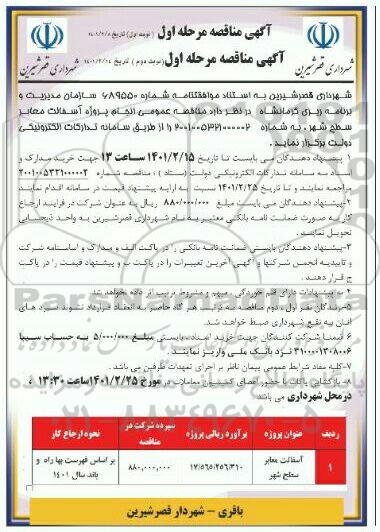 آگهی مناقصه مرحله اول ( نوبت اول) تاریخ ۱۴۰۱/۲/۸
آگهی مناقصه مرحله اول (نوبت دوم ) تاریخ ۱۴۰۱/۲/۱۴
شهرداری قصرشیرین
شهرداری قصرشیرین
شهرداری قصرشیرین به استناد موافقتنامه شماره ۶۸۹۵۵۰ سازمان مدیریت و
برنامه ریزی کرمانشاه در نظر دارد مناقصه عمومی انجام پروژه آسفالت معابر
سطح شهر ، به شماره ۲۰۰۱۰۰۵۳۲۱۰۰۰۰۰۲ را از طریق سامانه تدارکات الکترونیکی
دولت برگزار نماید .
۱- پیشنهاد دهندگان می بایست تا تاریخ ۱۴۰۱/۲/۱۵ ساعت ۱۳ جهت خرید مدارک و
اسناد به سامانه تدارکات الکترونیکی دولت (ستاد ) ، مناقصه شماره ۲۰۰۱۰۰۵۳۲۱۰۰۰۰۰۲
مراجعه نمایند و تا تاریخ ۱۴۰۱/۲/۲۵ نسبت به ارایه پیشنهاد قیمت در سامانه اقدام نمایند
۲- پیشنهاد دهندگان می بایست مبلغ ۸۸۰/۰۰۰/۰۰۰ ریال به عنوان شرکت در فرایند ارجاع
کار به صورت ضمانت نامه بانکی معتبر به نام شهرداری قصرشیرین به واحد ذیحسابی
تحویل نمایند.
۳-پیشنهاد دهندگان بایستی ضمانت نامه بانکی را در پاکت الف و مدارک و اساسنامه شرکت
و تاییدیه انجمن شرکتها و آگهی آخرین تغییرات را در پاکت ب و پیشنهاد قیمت را در پاکت
ج قرار دهند .
۴- به پیشنهادات دارای قلم خوردگی ، مبهم و مشروط ترتیب اثر داده نخواهد شد.
۵-برندگان نفر اول ، دوم مناقصه به ترتیب هر گاه حاضر به انعقاد قرارداد نشوند سپرده های
آنان به نفع شهرداری ضبط خواهد شد.
۶-ضمنا شرکت کنندگان جهت خرید اسناد،بایستی مبلغ ۵/۰۰۰/۰۰۰ به حساب سیبا
۳۱۰۰۰۰۱۳۰۸۰۰۶ نزد بانک ملی واریز نمایند.
۷-کلیه مفاد شرایط عمومی پیمان ناظر بر اجرای تعهدات طرفین می باشد .
۸- بازگشایی پاکات با حضور اعضای کمیسیون معاملات در مورخ ۱۴۰۱/۲/۲۵ ساعت ۱۳:۳۰ ،
درمحل شهرداری می باشد
ردیف عنوان پروژه برآورد ریالی پروژه سپرده شرکت در مناقصه نحوه ارجاع کار
۱ آسفالت معابر سطح شهر ۱۷/۵۶۵/۲۵۶/۳۱۰ ۸۸۰,۰۰۰,۰۰۰ بر اساس فهرست بها راه و باند سال ۱۴۰۱
باقری – شهردار قصرشیرین